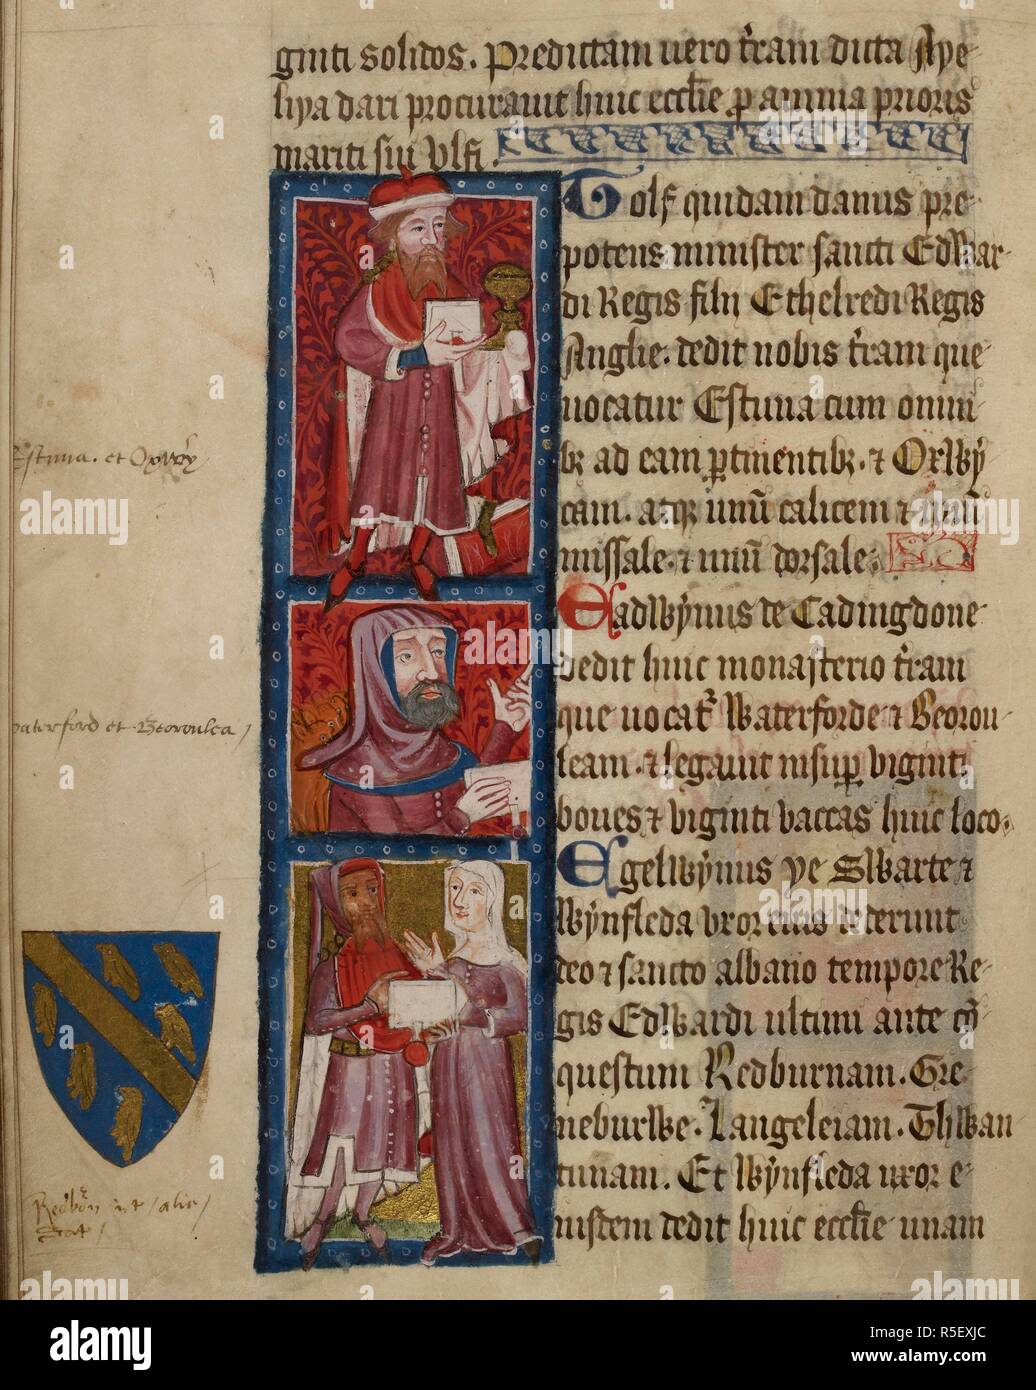 ginti solidos. Predictam uero t̄ram dicta Aye-
liya dari procurauit huic eccl̄ie p̱ anima prioris
mariti sui Vlfi.
Tolf quidam danus pre-
potens minister sancti Edwar-
di Regis filii Ethelredi Regis
Anglie. dedit nobis t̄ram que
uocatur Estuna cum omni-
bꝫ ad eam ꝑtinentibꝫ. ⁊ Oxwẏ
cam. atqꝫ unū calicem ⁊ unū
missale. ⁊ unū dorsale.
Eadwẏnus de Cadingdone
dedit huic monasterio t̄ram
que uocat᷑ Waterforde ⁊ Beorou-
leam. ⁊ legauit insuꝑ viginti
boues ⁊ viginti vaccas huic loco.
Egelwẏnus ye Swarte ⁊
Wẏnfleda vxor eius dederunt
deo ⁊ sancto albano tempore Re-
gis Edwardi ultimi ante cō-
questum Redburnam. Gre-
neburwe. Langeleiam. Thwan
tunam. Et Wẏnfleda uxor e-
iusdem dedit huic eccl̄ie unam
Estuna. et Oxwẏ
Waterford et Beoroulea
alamy
Image ID: R5EXJC
www.alamy.com